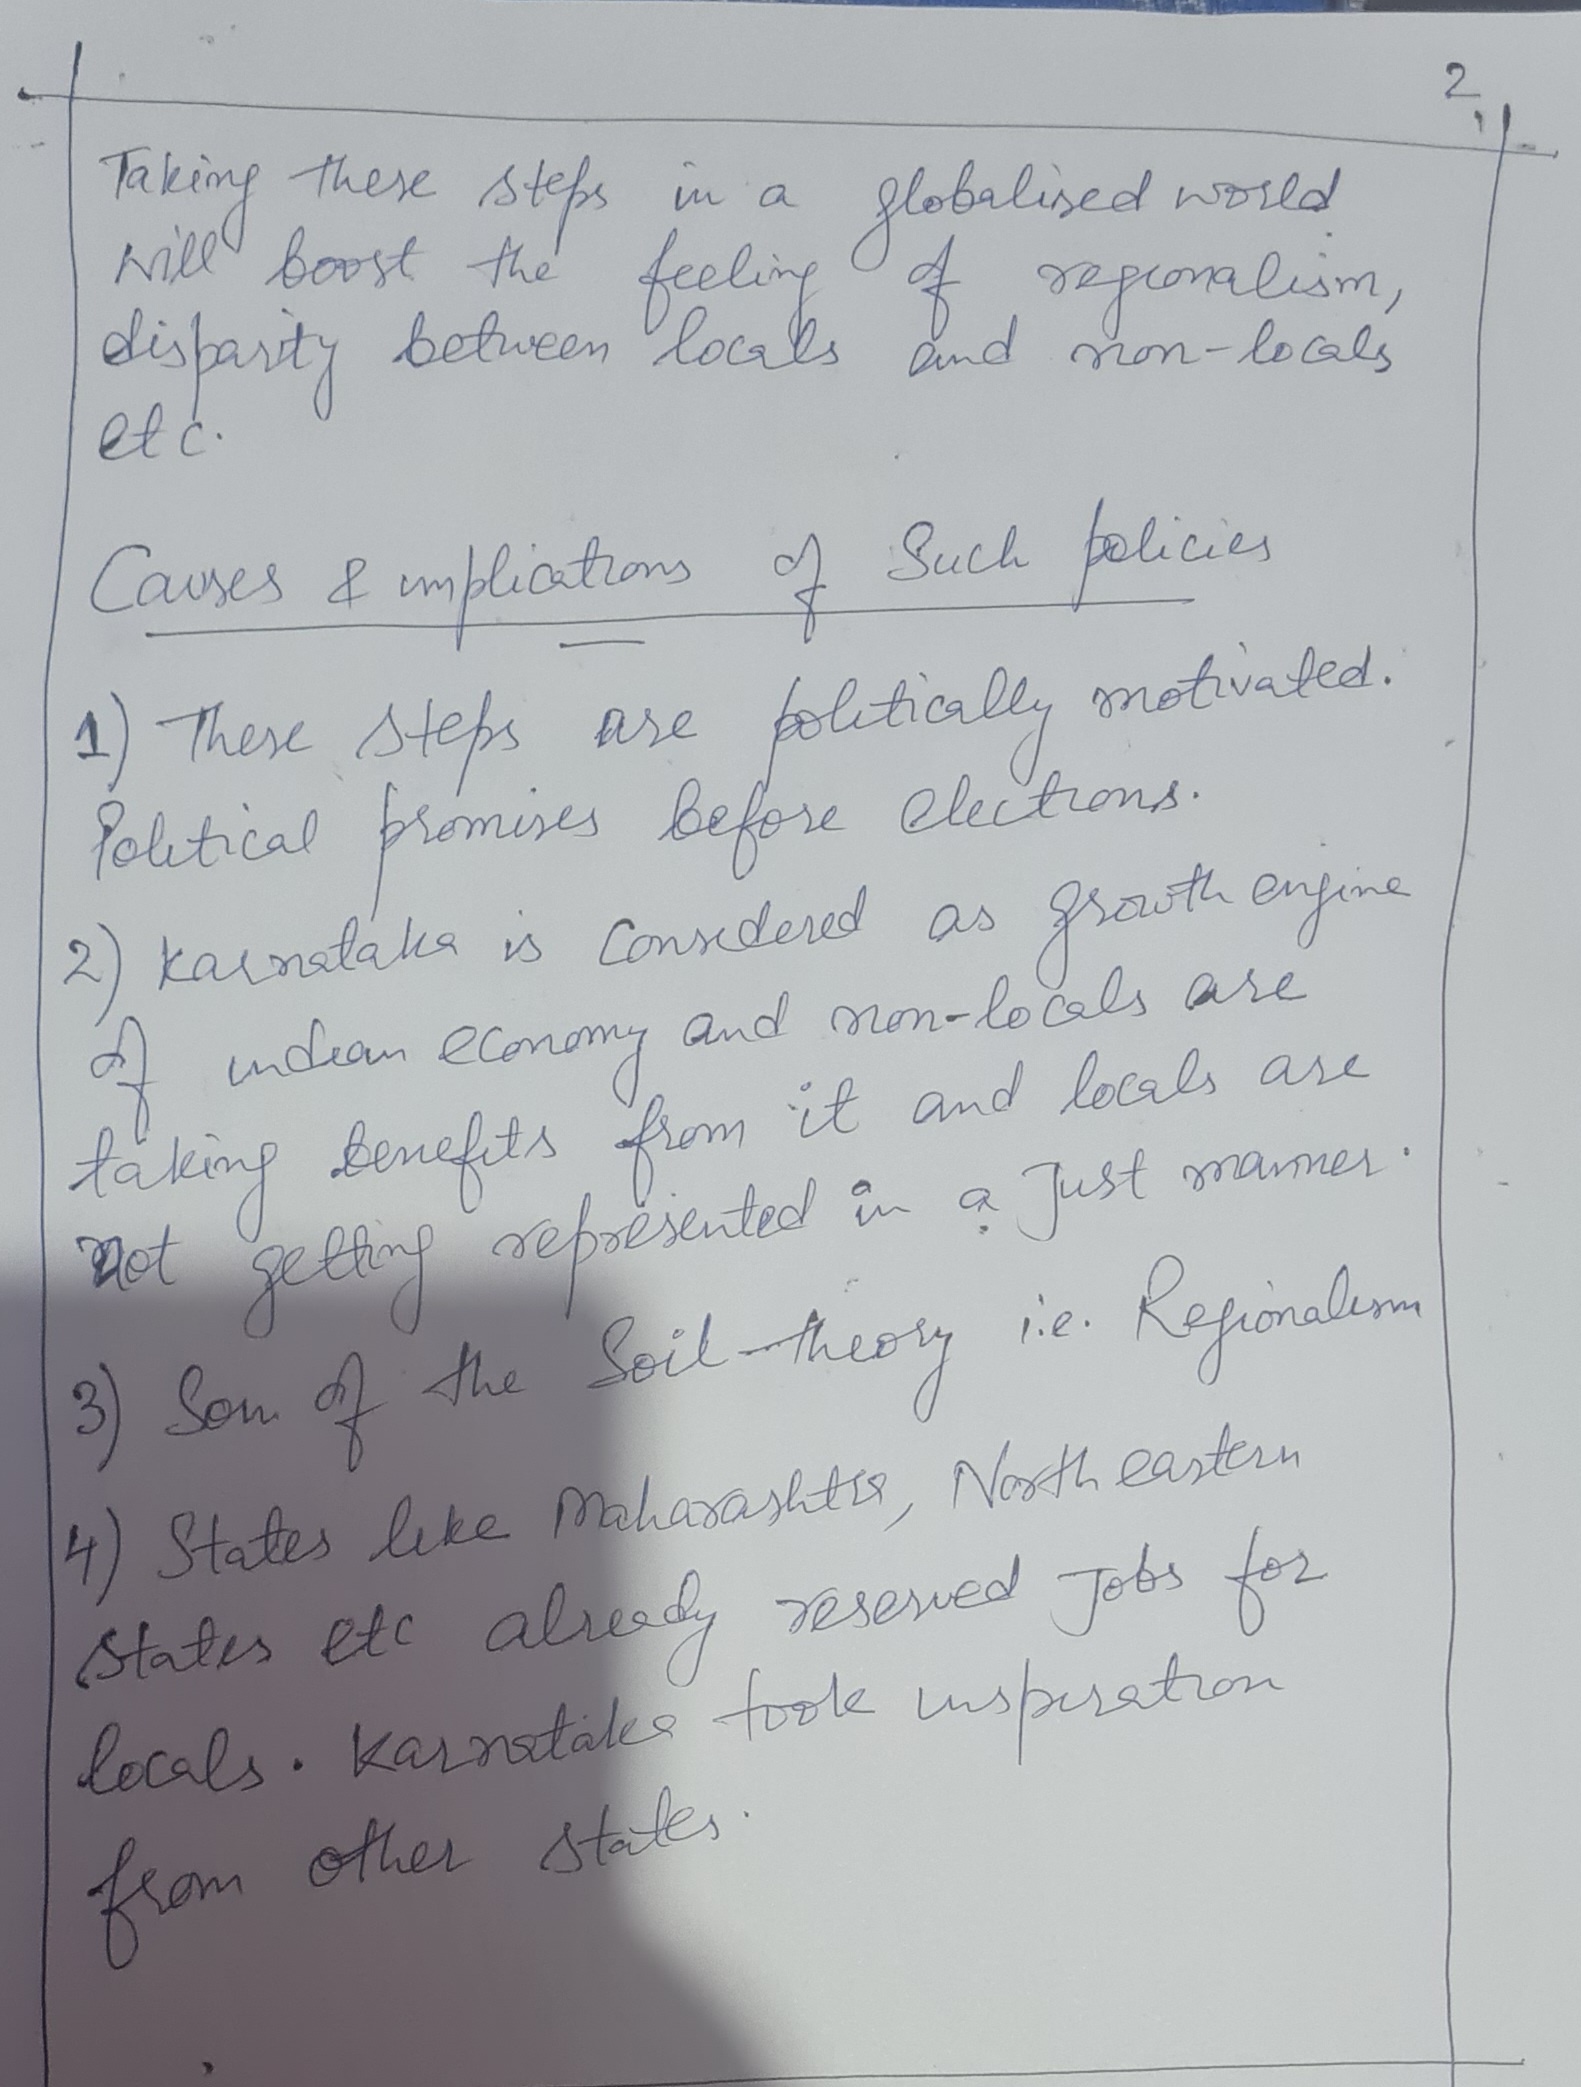 2
Taking these steps in a globalised world
will boost the feeling of regionalism,
disparity between locals and non-locals
etc.
Causes & implications of Such policies
1) These steps are politically motivated.
Political promises before elections.
2) Karnataka is Considered as growth engine
of indian economy and non-locals are
taking benefits from it and locals are
not getting represented in a Just manner.
3) Son of the Soil-theory i.e. Regionalism
4) States like Maharashtra, North eastern
states etc already reserved Jobs for
locals. Karnataka took inspiration
from other states.